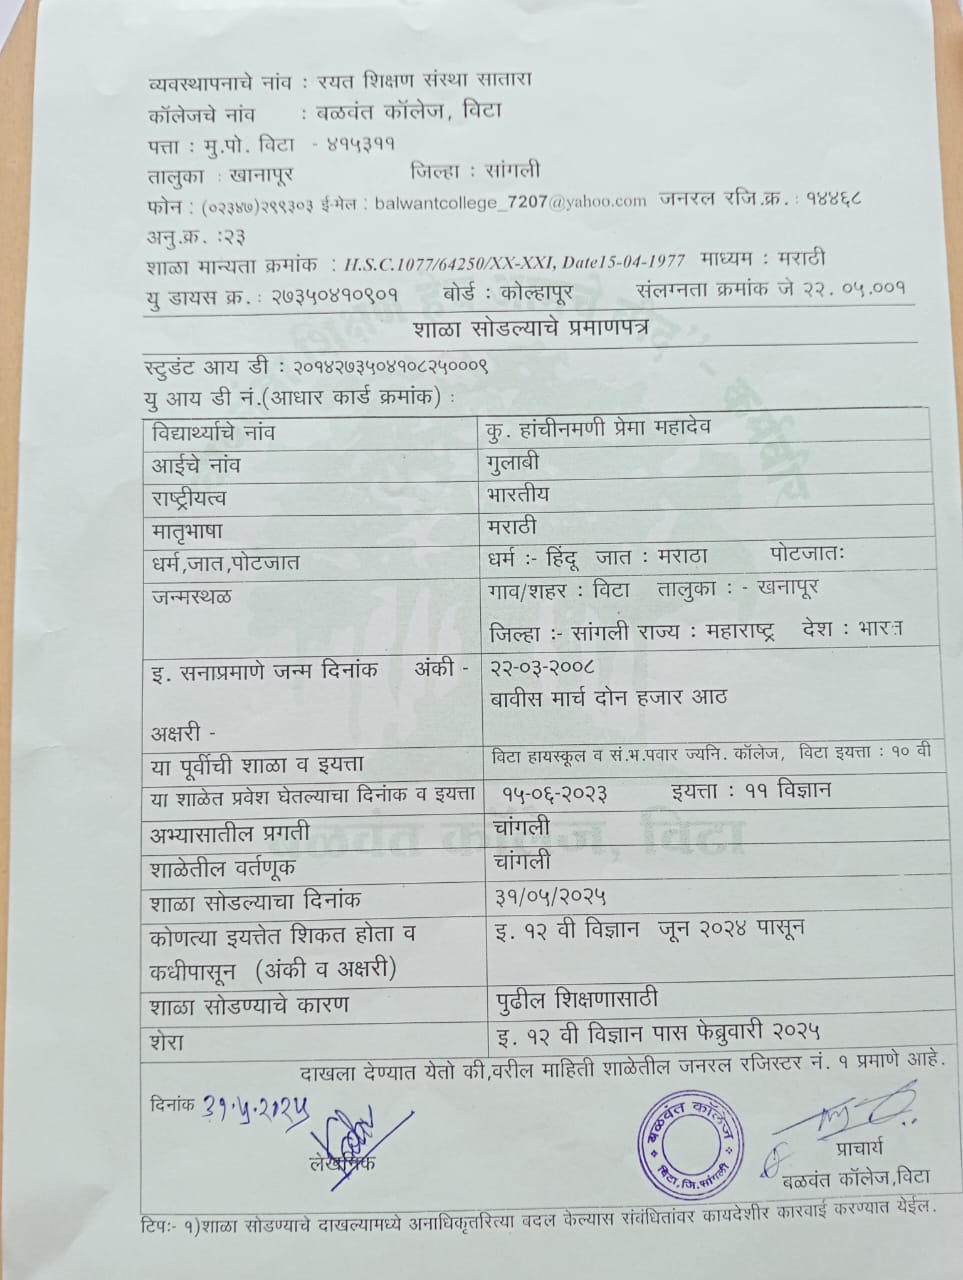 व्यवस्थापनाचे नांव : रयत शिक्षण संस्था सातारा
कॉलेजचे नांव : बळवंत कॉलेज, विटा
पत्ता : मु.पो. विटा - ४१५३११
तालुका : खानापूर जिल्हा : सांगली
फोन : (०२३४७)२९९३०३ ई-मेल : balwantcollege_7207@yahoo.com जनरल रजि.क्र. : १४४६८
अनु.क्र. :२३
शाळा मान्यता क्रमांक : H.S.C.1077/64250/XX-XXI, Date15-04-1977 माध्यम : मराठी
यु डायस क्र. : २७३५०४१०९०१ बोर्ड : कोल्हापूर संलग्नता क्रमांक जे २२. ०५.००१
शाळा सोडल्याचे प्रमाणपत्र
स्टुडंट आय डी : २०१४२७३५०४१०८२५०००९
यु आय डी नं.(आधार कार्ड क्रमांक) :
विद्यार्थ्याचे नांव कु. हांचीनमणी प्रेमा महादेव
आईचे नांव गुलाबी
राष्ट्रीयत्व भारतीय
मातृभाषा मराठी
धर्म,जात,पोटजात धर्म :- हिंदू जात : मराठा पोटजातः
जन्मस्थळ गाव/शहर : विटा तालुका : - खनापूर
जिल्हा :- सांगली राज्य : महाराष्ट्र देश : भारत
इ. सनाप्रमाणे जन्म दिनांक अंकी - २२-०३-२००८
बावीस मार्च दोन हजार आठ
अक्षरी -
या पूर्वीची शाळा व इयत्ता विटा हायस्कूल व सं.भ.पवार ज्यनि. कॉलेज, विटा इयत्ता : १० वी
या शाळेत प्रवेश घेतल्याचा दिनांक व इयत्ता १५-०६-२०२३ इयत्ता : ११ विज्ञान
अभ्यासातील प्रगती चांगली
शाळेतील वर्तणूक चांगली
शाळा सोडल्याचा दिनांक ३१/०५/२०२५
कोणत्या इयत्तेत शिकत होता व इ. १२ वी विज्ञान जून २०२४ पासून
कधीपासून (अंकी व अक्षरी)
शाळा सोडण्याचे कारण पुढील शिक्षणासाठी
शेरा इ. १२ वी विज्ञान पास फेब्रुवारी २०२५
दाखला देण्यात येतो की,वरील माहिती शाळेतील जनरल रजिस्टर नं. १ प्रमाणे आहे.
दिनांक ३१.५.२०२५
लेखनिक
बळवंत कॉलेज
विटा, जि.सांगली
प्राचार्य
बळवंत कॉलेज,विटा
टिपः- १)शाळा सोडण्याचे दाखल्यामध्ये अनाधिकृतरित्या बदल केल्यास संबंधितांवर कायदेशीर कारवाई करण्यात येईल.